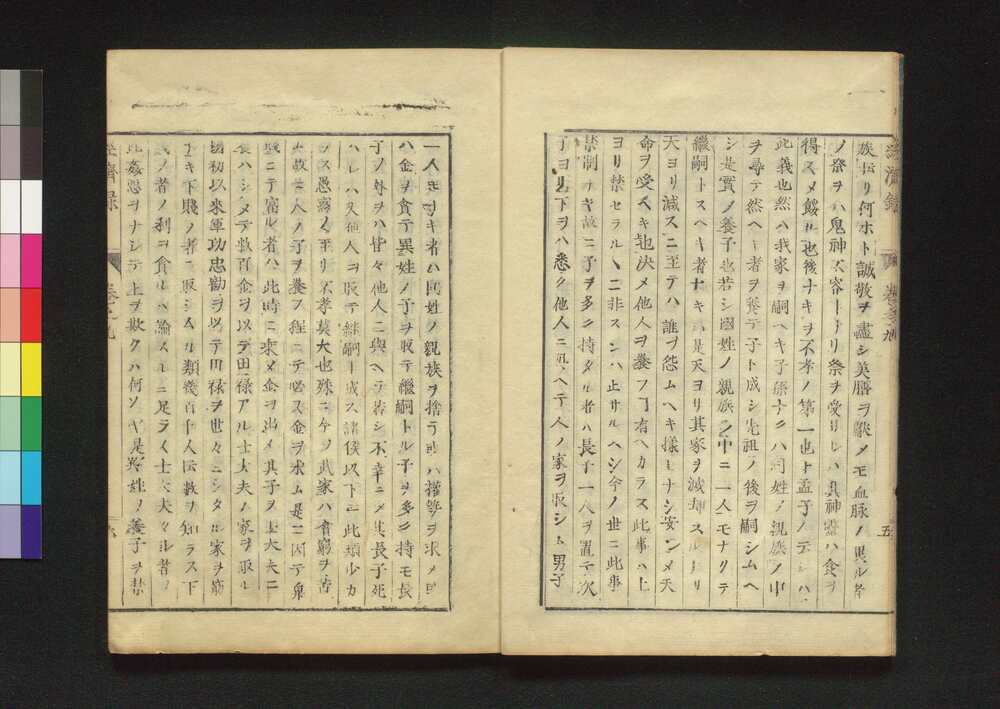 経済録 巻之九 五
族伝リ何ホト誠敬ヲ盡シ美膳ヲ献メモ血脉ノ異ル
ノ祭ヲハ鬼神不容トリ祭ヲ受ケレハ其神霊ハ食ヲ
得スメ餒ル也後ナキヲ不孝ノ第一也ト孟子ノ
此義也然ハ我家ヲ嗣ヘキ子孫ナクハ同姓ノ親族ノ中
ヲ尋テ然ヘキ者ヲ養テ子ト成シ先祖ノ後ヲ嗣シムヘ
シ是實ノ養子也若シ同姓ノ親族ノ中ニ一人モナクテ
繼嗣トスヘキ者ナキハ是天ヨリ其家ヲ滅却スル
天ヨリ滅スニ至テハ誰ヲ怨ムヘキ様モナシ安ンメ天
命ヲ受ヘキ也决メ他人ヲ養フヿ有ヘカラス此事ハ上
ヨリ禁セラルヽニ非スンハ止サルヘシ今ノ世ニ此事
禁制ナキ故ニ子ヲ多ク持タル者ハ長子一人ヲ置テ次
子ヨリ以下ヲハ悉ク他人ニ與ヘテ人ノ家ヲ嗣シム男子
一人モナキ者ハ同姓ノ親族ヲ捨テ或ハ權勢ヲ求メ或
ハ金ヲ貪テ異姓ノ子ヲ取テ繼嗣トル子ヲ多ク持モ長
子ノ外ヲハ皆々他人ニ與ヘテ若シ不幸ニメ其長子死
ハレハ又他人ヲ取テ継嗣ト成ス諸侯以下ニ此類少カ
ラス愚惑ノ至リ不孝莫大也殊ニ今ノ武家ハ貧窮ヲ苦
ム故ニ人ノ子ヲ養フ程ニテ必ス金ヲ求ム是ニ因テ
賤ニテ富ル者ハ此時ニ乗メ金ヲ出メ其子ヲ士大夫ニ
養ハシメテ数百金ヲ以テ田禄アル士大夫ノ家ヲ取ル
國初以来軍功忠勤ヲ以テ田禄ヲ世々ニシタル家ヲ
ナキ下賤ノ者ニ取シムル類幾百千人ト云數ヲ知ラス下
賤ノ者ノ利ヲ貪ルハ論スルニ足ラス士大夫タル者ノ
此姦悪ヲナシテ上ヲ欺クハ何ソヤ是異姓ノ養子ヲ禁
経済録 巻之九 六